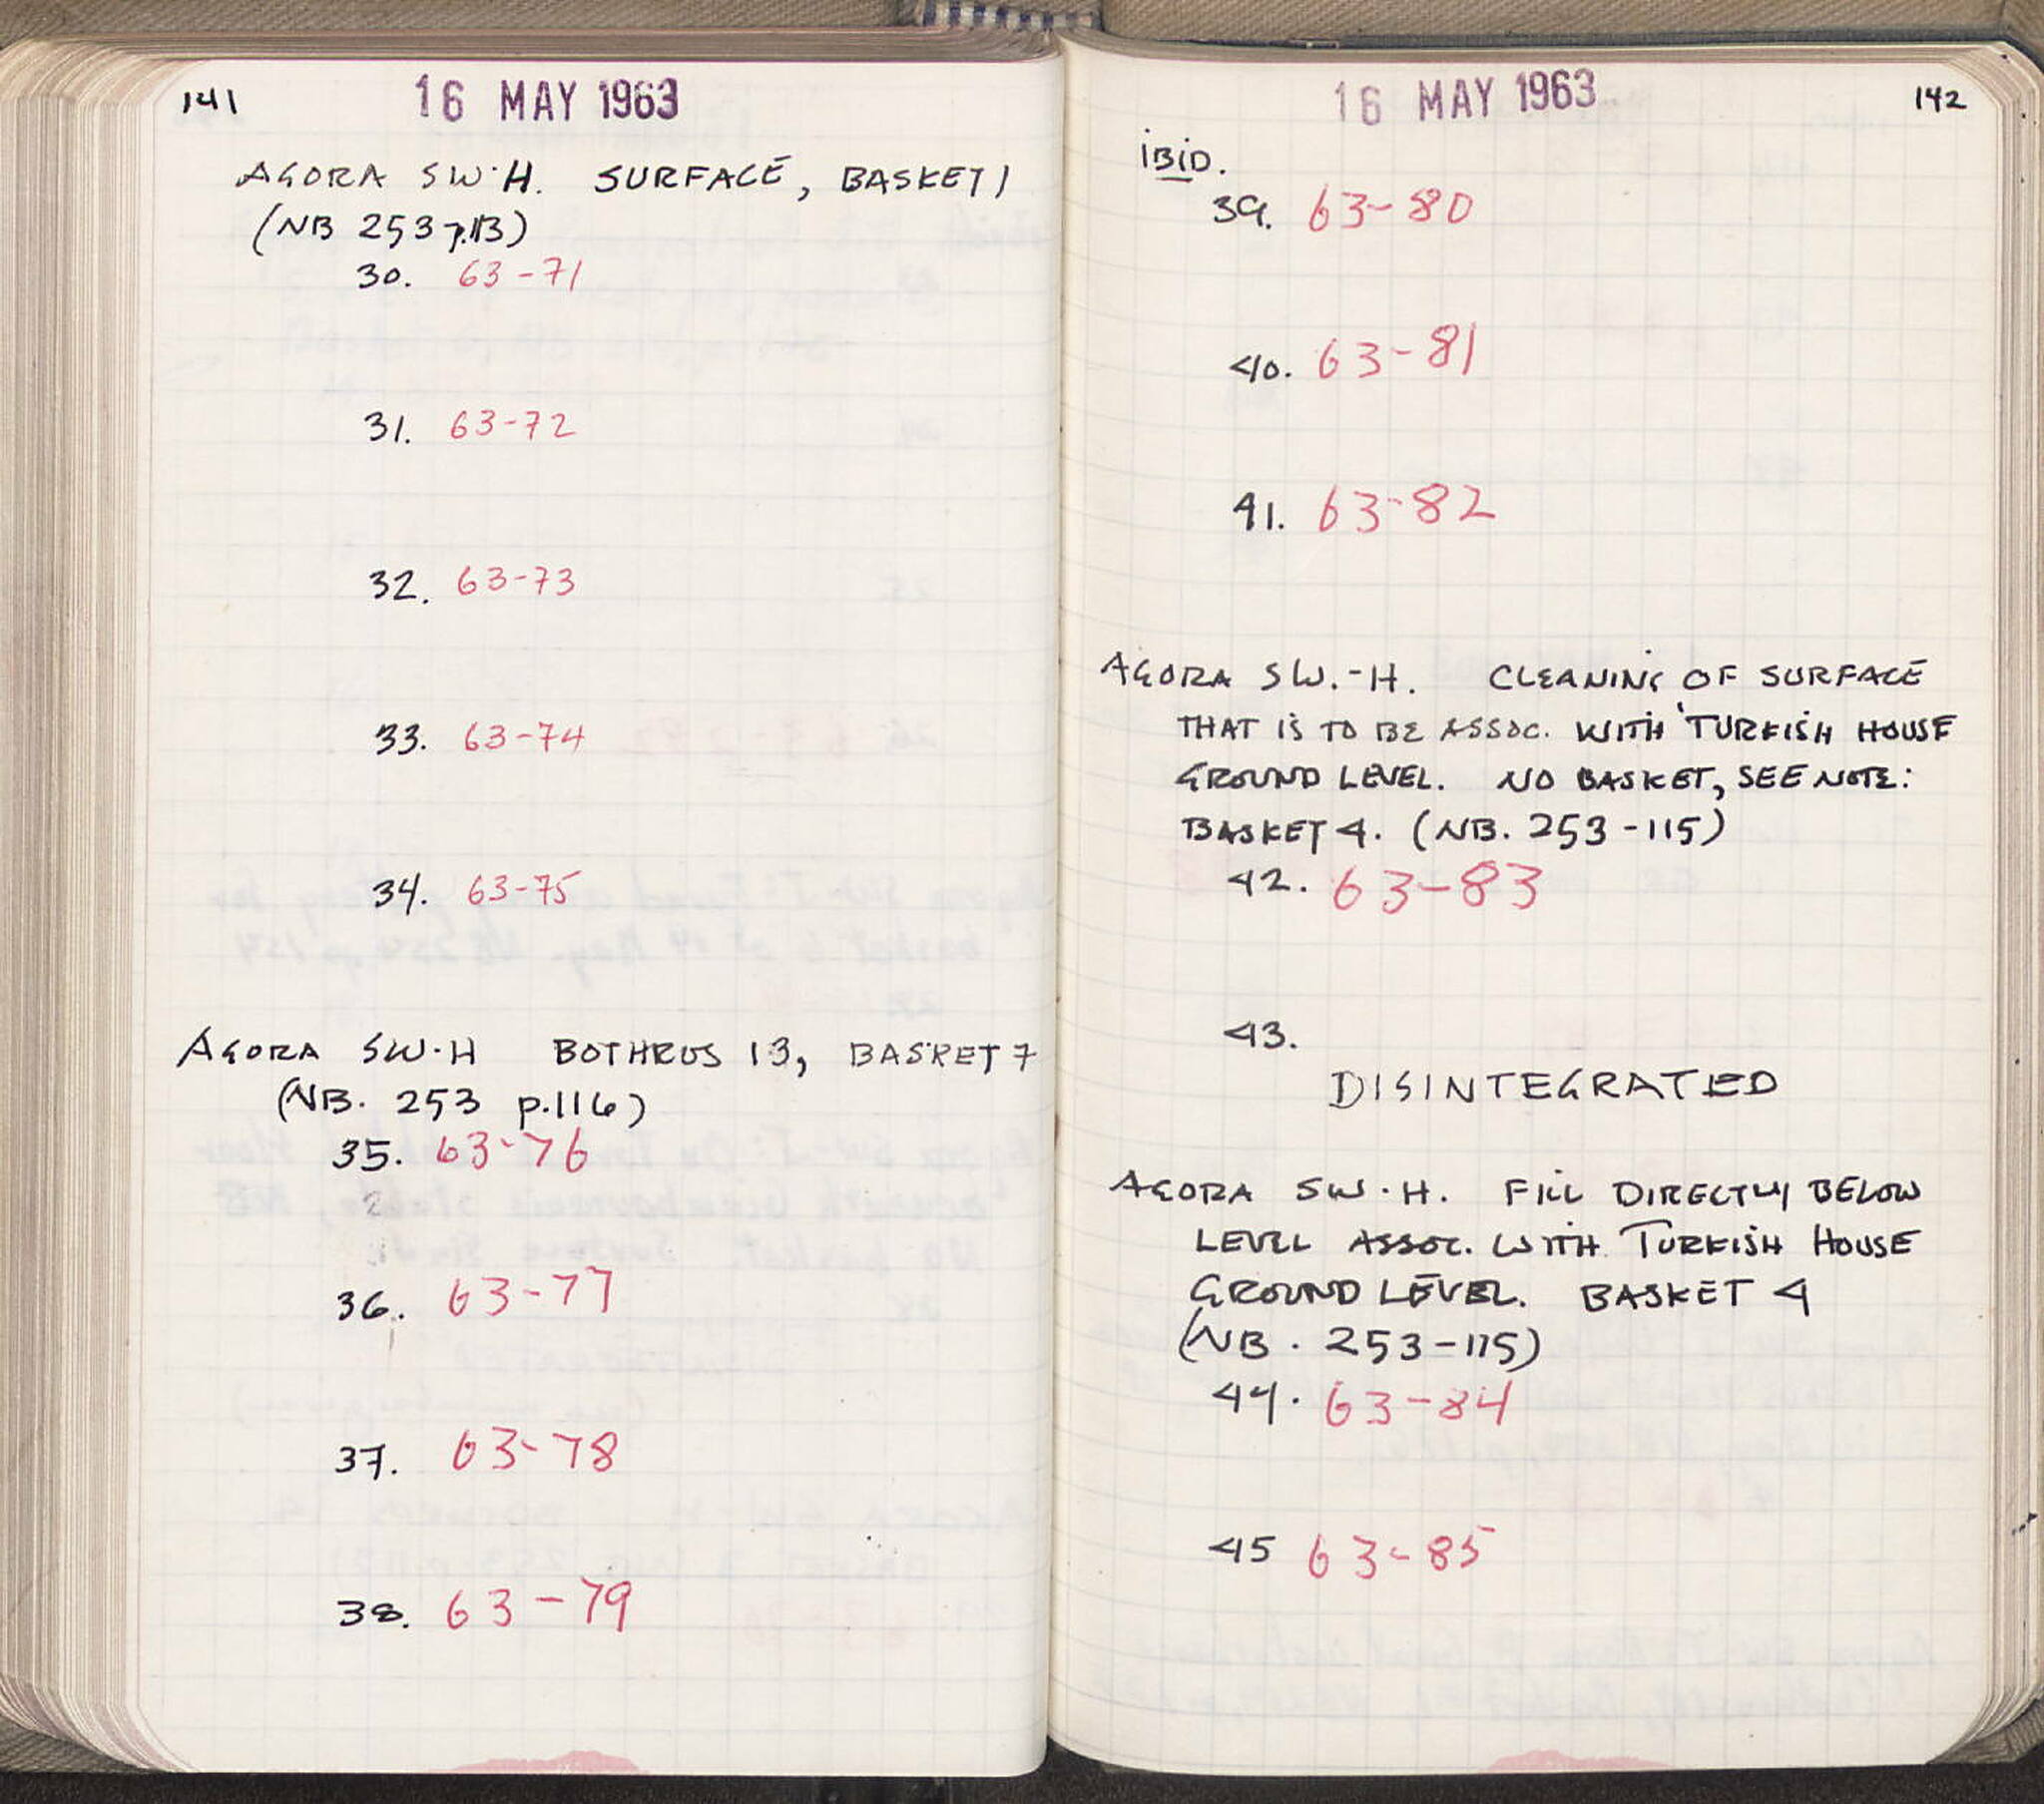 141
16 MAY 1963
AGORA SW·H. SURFACE, BASKET 1
(NB 253 p.113)
30. 63-71
31. 63-72
32. 63-73
33. 63-74
34. 63-75
AGORA SW·H BOTHROS 13, BASKET 7
(NB. 253 p.116)
35. 63-76
36. 63-77
37. 63-78
38. 63-79
16 MAY 1963
142
IBID.
39. 63-80
40. 63-81
41. 63-82
AGORA SW.-H. CLEANING OF SURFACE
THAT IS TO BE ASSOC. WITH TURKISH HOUSE
GROUND LEVEL. NO BASKET, SEE NOTE:
BASKET 4. (NB. 253-115)
42. 63-83
43.
DISINTEGRATED
AGORA SW·H. FILL DIRECTLY BELOW
LEVEL ASSOC. WITH TURKISH HOUSE
GROUND LEVEL. BASKET 4
(NB. 253-115)
44. 63-84
45 63-85